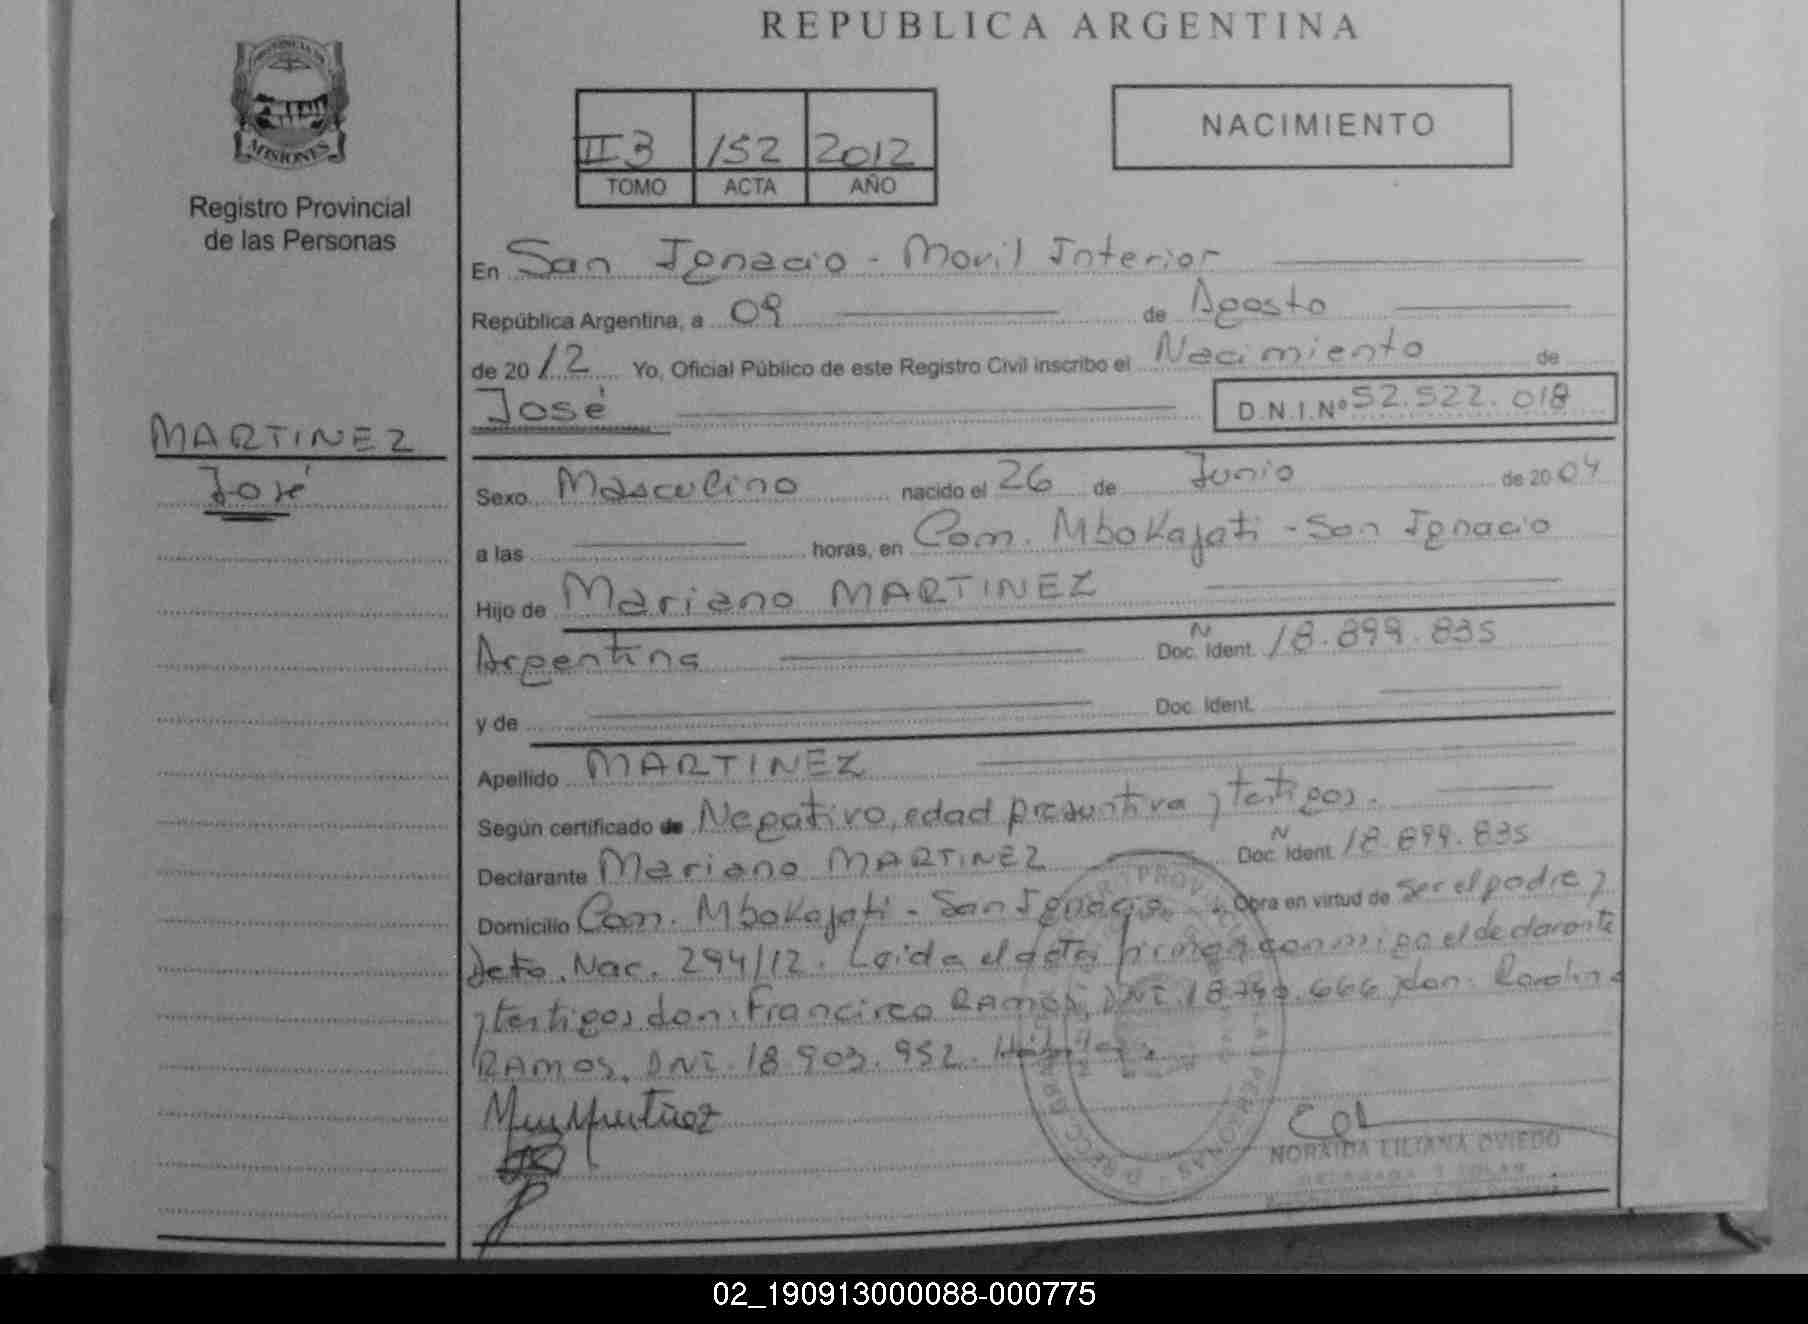 REPUBLICA ARGENTINA
PROVINCIA DE
MISIONES
Registro Provincial
de las Personas
II 3 152 2012
TOMO ACTA AÑO
NACIMIENTO
En San Ignacio - Movil Interior
República Argentina, a 09 de Agosto
de 2012 Yo, Oficial Público de este Registro Civil inscribo el Nacimiento de
José D.N.I.Nº 52.522.018
MARTINEZ
José
Sexo Masculino nacido el 26 de Junio de 2004
a las horas, en Com. Mbokajati - San Ignacio
Hijo de Mariano MARTINEZ
Argentina Doc. Ident. N 18.899.835
y de Doc. Ident.
Apellido MARTINEZ
Según certificado de Negativo, edad presuntiva y testigos.
Declarante Mariano MARTINEZ Doc. Ident. N 18.899.835
Domicilio Com. Mbokajati - San Ignacio Obra en virtud de ser el padre y
Dcto. Nac. 294/12. Leida el acta firman conmigo el declarante
y testigos don: Francisco RAMOS, DNI. 18.740.666 y don.
RAMOS, DNI. 18.903.952.
NORAIDA LILIANA OVIEDO
02_190913000088-000775